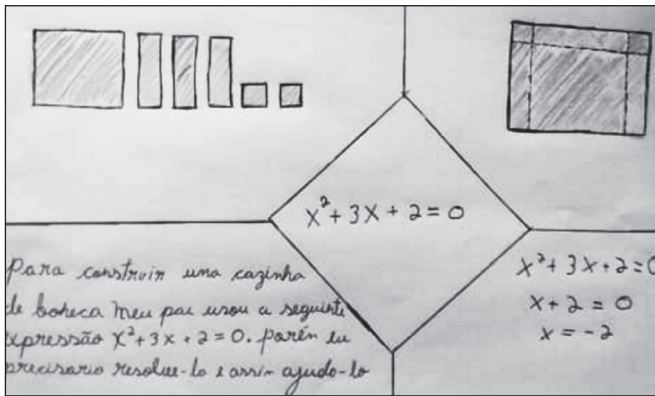 x² + 3x + 2 = 0
Para construir uma cazinha
de boneca meu pai usou a seguinte
expressão x² + 3x + 2 = 0. porén eu
precisario resolve-lo e assim ajudo-lo
x² + 3x + 2 = 0
x + 2 = 0
x = -2